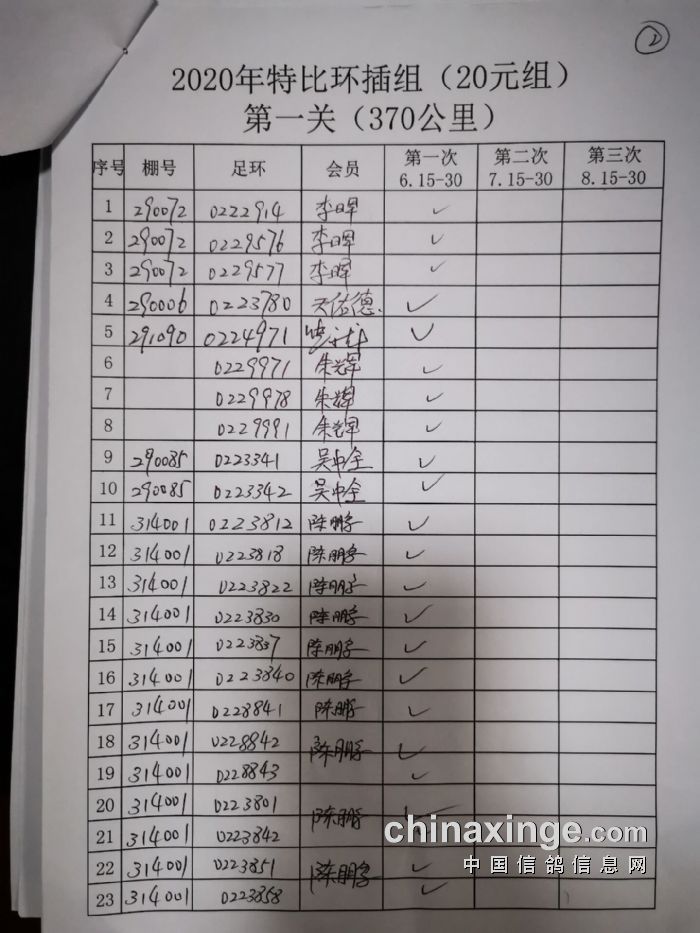 2
2020年特比环插组（20元组）
第一关（370公里）
序号 棚号 足环 会员 第一次 6.15-30 第二次 7.15-30 第三次 8.15-30
1 290072 0222914 李晖 ✓
2 290072 0229576 李晖 ✓
3 290072 0229577 李晖 ✓
4 290006 0223780 天佑德 ✓
5 291090 0224971 ✓
6 0229971 朱辉 ✓
7 0229978 朱辉 ✓
8 0229991 朱辉 ✓
9 290085 0223341 吴中全 ✓
10 290085 0223342 吴中全 ✓
11 314001 0223812 陈鹏 ✓
12 314001 0223818 陈鹏 ✓
13 314001 0223822 陈鹏 ✓
14 314001 0223830 陈鹏 ✓
15 314001 0223837 陈鹏 ✓
16 314001 0223840 陈鹏 ✓
17 314001 0228841 陈鹏 ✓
18 314001 0228842 陈鹏 ✓
19 314001 0228843 ✓
20 314001 0223801 陈鹏 ✓
21 314001 0223842
22 314001 0223851 陈鹏 ✓
23 314001 0223858 ✓
chinaxinge.com
中国信鸽信息网